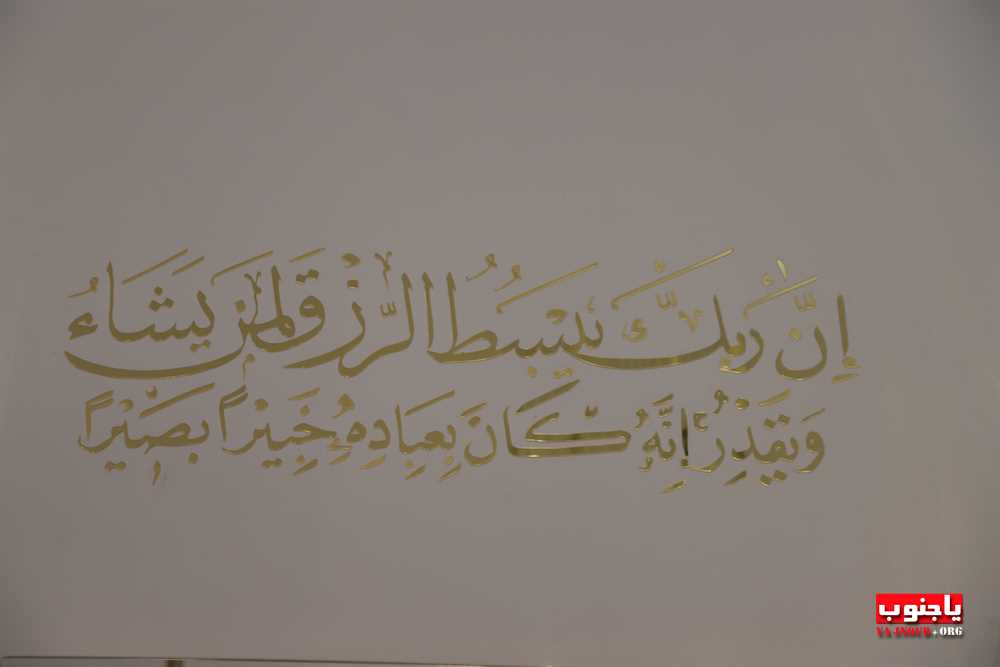 إِنَّ رَبَّكَ يَبْسُطُ الرِّزْقَ لِمَن يَشَاءُ
وَيَقْدِرُ إِنَّهُ كَانَ بِعِبَادِهِ خَبِيْرًا بَصِيْرًا
ياجنوب
YA-JNOUB.ORG